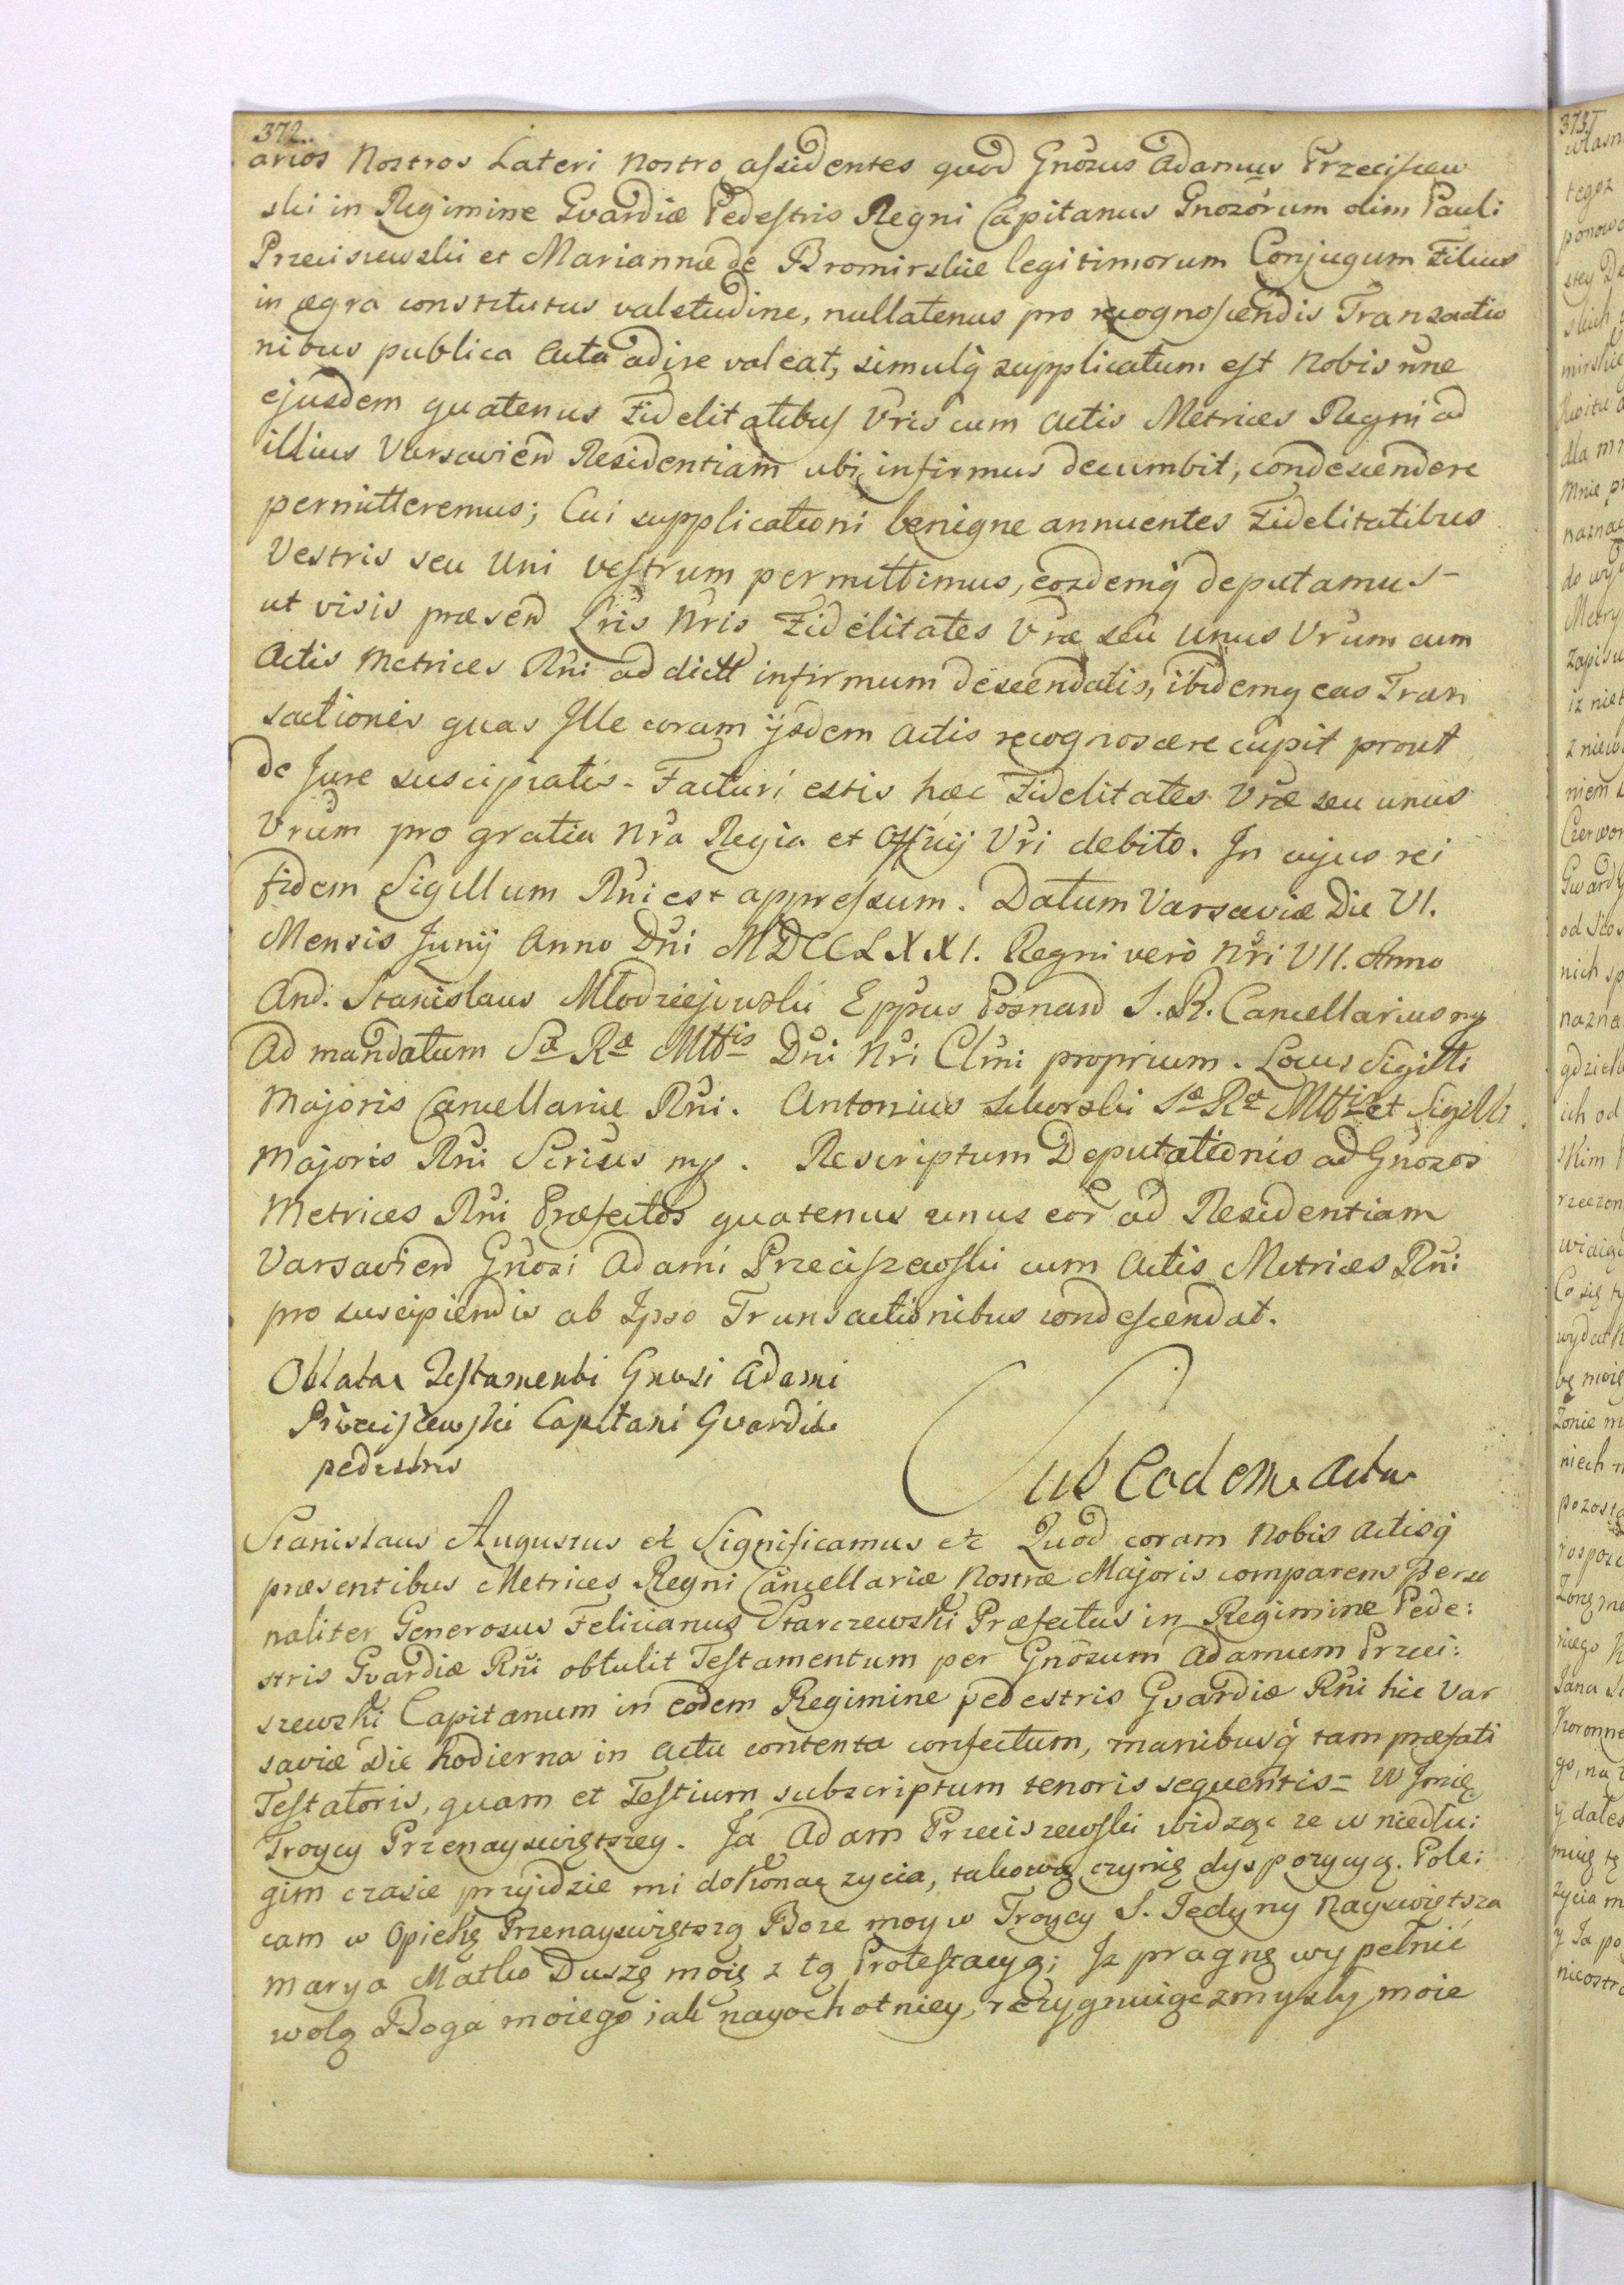 372.
arios Nostros Lateri nostro assidentes quod Gnosus Adamus Przeciszew
ski in Regimine Gvardiæ Pedestris Regni Capitanus Gnosorum olim Pauli
Przeciszewski et Mariannæ de Bromirskie legitimorum Conjugum Filius
in ægra constitutus valetudine, nullatenus pro recognoscendis Transactio
nibus publica Acta adire valeat, simulq supplicatum est Nobis nne
ejusdem quatenus Fidelitatibus Vris cum Actis Metrices Regni ad
illius Varsavien Residentiam ubi infirmus decumbit, condescendere
permitteremus; Cui supplicationi benigne annuentes Fidelitatibus
Vestris seu Uni vestrum permittimus, eosdemq deputamus-
ut visis præsen Lris Nris Fidelitates Vræ seu unus Vrum cum
Actis Metrices Rni ad dict infirmum descendatis, ibidemq eas Tran
sactiones quas Ille coram ijsdem Actis recognoscere cupit prout
de Jure suscipiatis- Facturi estis hæc Fidelitates Vræ seu unus
Vrum pro gratia Nra Regia et Officij Vri debito. In cujus rei
fidem Sigillum Rni est appressum. Datum Varsaviæ Die VI.
Mensis Junij Anno Dni MDCCLXXI. Regni verò Nri VII. Anno
And. Stanislaus Młodziejowski Eppus Posnan S. R. Cancellarius mp
Ad mandatum Sæ Ræ Mttis Dni Nri Clmi proprium. Locus Sigilli
Majoris Cancellariæ Rni. Antonius Sikorski Sæ Ræ Mttis et Sigilli
Majoris Rni Scrius mp. Rescriptum Deputationis ad Gnosos
Metrices Rni Præfectos quatenus unus eor ad Residentiam
Varsavien Gnosi Adami Przeciszewski cum Actis Metrices Rni
pro suscipiendis ab Ipso Transactionibus condescendat.
Oblata Testamenti Gnosi Adami
Przeciszewski Capitani Gvardiæ
pedestris
Sub Eodem Actu
Stanislaus Augustus et Significamus etc Quod coram Nobis Actisq
præsentibus Metrices Regni Cancellariæ Nostræ Majoris comparens perso
naliter Generosus Felicianus Starczewski Præfectus in Regimine Pede:
stris Gvardiæ Rni obtulit Testamentum per Gnosum Adamum Przeci:
szewski Capitanum in eodem Regimine pedestris Gvardiæ Rni hic Var
saviæ Die hodierna in Actu contenta confectum, manibusq tam præfati
Testatoris, quam et Testium subscriptum tenoris sequentis= W Jmię
Troycy Przenayswiętszey. Ja Adam Przeciszewski widząc ze w niedłu:
gim czasie przyidzie mi dokonać zycia, takową czynię dyspozycyą. Pole:
cam w Opiekę Przenayswiętszą Boze moy w Troycy S. Jedyny Nayswiętsza
Marya Matko Duszę moię z tą Protestacyą; Iz pragnę wypełnić
wolą Boga moiego iak nayochotniey, rezygnuiąc zmysły moie
373.
własn
tegoz
ponowo
skich
mirskie
dla mn
Mnie pr
naznac
do wyd
Metry
zapisu
iz niet
z niew
niem
Czerwon
Gwardy
nich sp
nazna
gdziek
ich od
skim
rzeczon
Co się ty
Zonie m
niech n
pozosta
rospor
Zonę mo
Koronne
y dałes
zycia m
y Ja po